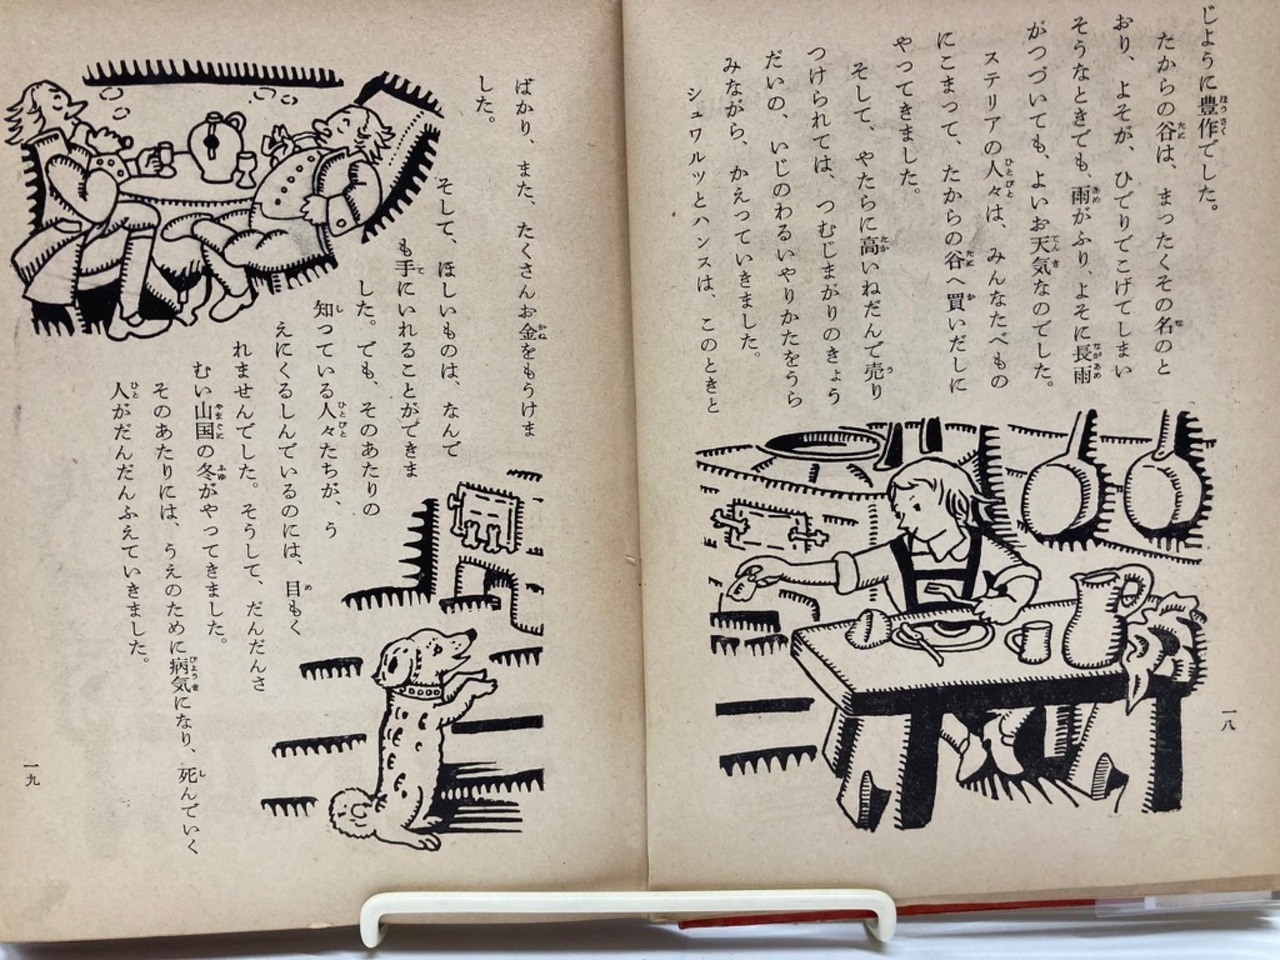 じように豊作でした。
たからの谷は、まったくその名のと
おり、よそが、ひでりでこげてしまい
そうなときでも、雨がふり、よそに長雨
がつづいても、よいお天気なのでした。
ステリアの人々は、みんなたべもの
にこまって、たからの谷へ買いだしに
やってきました。
そして、やたらに高いねだんで売り
つけられては、つむじまがりのきょう
だいの、いじのわるいやりかたをうら
みながら、かえっていきました。
シュワルツとハンスは、このときと
一八
ばかり、また、たくさんお金をもうけま
した。
そして、ほしいものは、なんで
も手にいれることができま
した。でも、そのあたりの
知っている人々たちが、う
えにくるしんでいるのには、目もく
れませんでした。そうして、だんだんさ
むい山国の冬がやってきました。
そのあたりには、うえのために病気になり、死んでいく
人がだんだんふえていきました。
一九